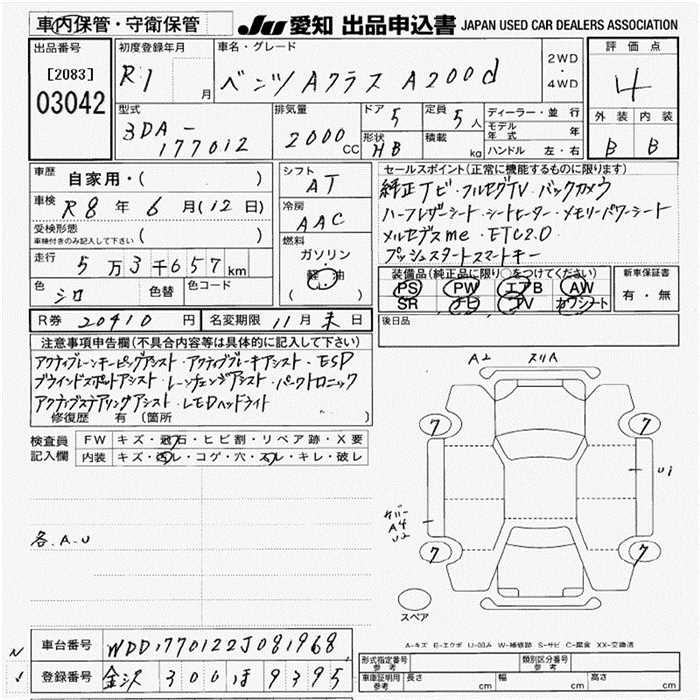 車内保管・守衛保管
JU 愛知 出品申込書 JAPAN USED CAR DEALERS ASSOCIATION
出品番号
[2083]
03042
初度登録年月
R1 月
車名・グレード
ベンツAクラス A200d
2WD
・
4WD
評価点
4
外装 内装
B B
型式
3DA-
177012
排気量
2000 CC
ドア 5
形状 HB
定員 5 人
積載 kg
ディーラー・並行
モデル年式 年
ハンドル 左・右
車歴 自家用・( )
車検 R8年6月(12日)
受検形態
車検付きのみ記入して下さい ( )
走行 5万3千657km
色 シロ 色替 色コード
シフト
AT
冷房
AAC
燃料
ガソリン
軽油
( )
セールスポイント(正常に機能するものに限ります)
純正ナビ・フルセグTV・バックカメラ
ハーフレザーシート・シートヒーター・メモリーパワーシート
メルセデスme・ETC2.0
プッシュスタートスマートキー
装備品(純正品に限り○をつけてください)
PS PW エアB AW
SR ナビ TV カワシート
新車保証書
有・無
R券 20410 円 名変期限 11月末日
後日品
注意事項申告欄(不具合内容等は具体的に記入して下さい)
アクティブレーンキーピングアシスト・アクティブブレーキアシスト・ESP
ブラインドスポットアシスト・レーンチェンジアシスト・パークトロニック
アクティブステアリングアシスト・LEDヘッドライト
修復歴 有(箇所 )
検査員
記入欄
FW キズ・飛石・ヒビ割・リペア跡・X要
内装 キズ・汚レ・コゲ・穴・スレ・キレ・破レ
各.A.U
A2 スリA
7 7
U1
カバー
A4
U2
7 7
スペア
A-キズ E-エクボ U-凹み W-補修跡 S-サビ C-腐食 XX-交換済
車台番号 WDD1770122J081968
登録番号 金沢 300 ほ 9395
形式指定番号
参考
類別区分番号
参考
車庫証明用
参考
長さ cm 幅 cm 高さ cm